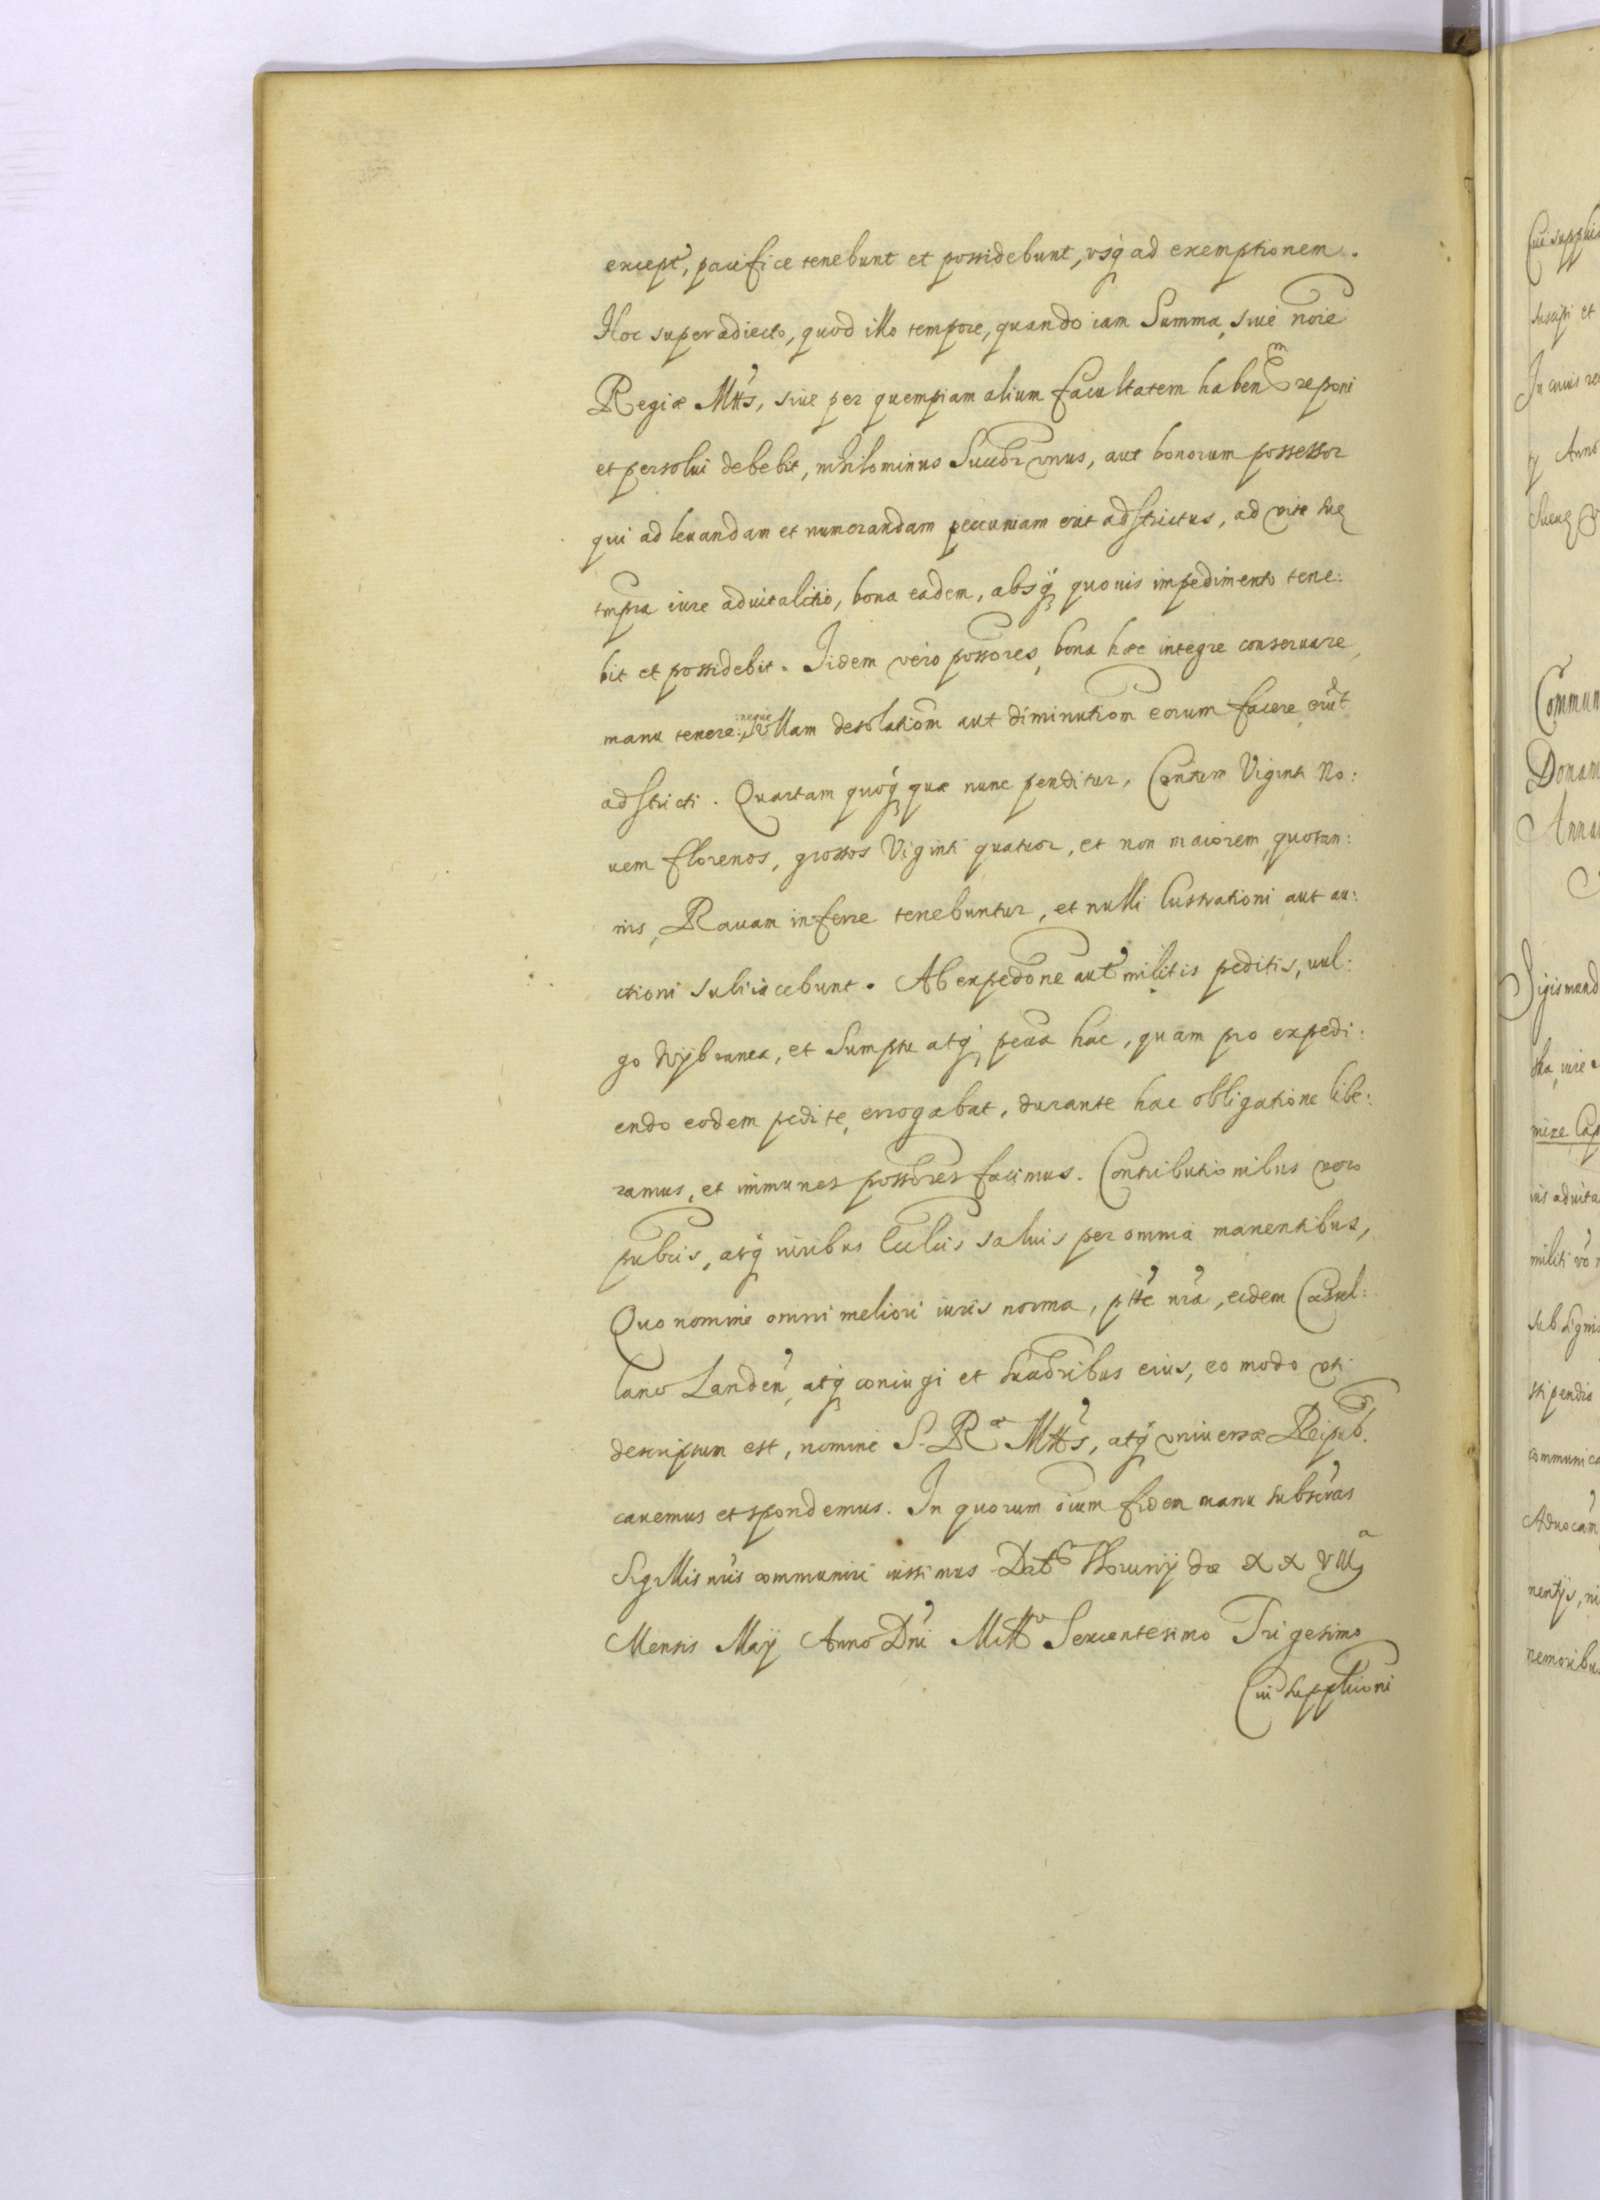 except, pacifice tenebunt et possidebunt, vsq ad exemptionem.
Hoc superadiecto, quod illo tempore, quando iam Summa, siue noie
Regiæ Mttis, siue per quempiam alium facultatem haben͠ reponi
et persolui debebit, nihilominus Succor vnus, aut bonorum possessor
qui ad leuandam et numerandam pecuniam erit adstrictus, ad vite suę
tmpra iure aduitalitio, bona eadem, absq quouis impedimento tene:
bit et possidebit. Jidem vero possores, bona hæc integre conseruare,
manu tenere, neque vllam desolatiom aut diminutiom eorum facere erut
adstricti. Quartam quoq quæ nunc penditur, Centum Viginti No:
uem florenos, grossos Viginti quatuor, et non maiorem, quotan:
nis, Rauam inferre tenebuntur, et nulli lustrationi aut au:
ctioni subiacebunt. Ab expedone aut militis peditis, vul:
go Wybranca, et Sumptu atq pecua hac, quam pro expedi:
endo eodem pedite, errogabat, durante hac obligatione libe:
ramus, et immunes possores facimus. Contributionibus vero
publcis, atq iuribus Ecclcis saluis per omnia manentibus,
Quo nomine omni meliori iuris norma, ptte nra, eidem Castel:
lano Landen, atq coniugi et Succoribus eius, eo modo vti
descriptum est, nomine S. Ræ Mttis, atq vniuersæ Reipub.
cauemus et spondemus. In quorum oium fidem manu subscras
Sigillis nris communiri iussimus Dat Thorunij die XXVIIIa
Mensis Maij Anno Dni Millo Sexcentesimo Trigesimo
Cui supplicioni
Communi
Donam
Sigismund